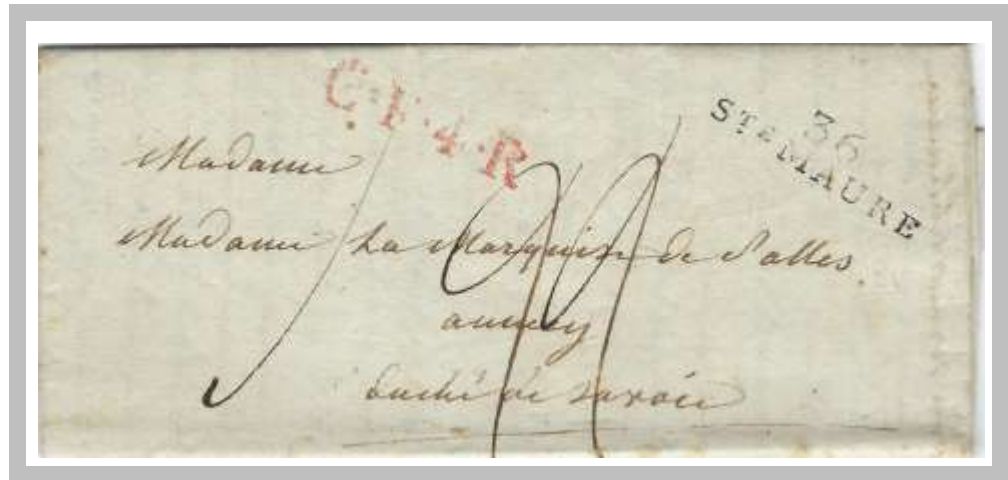 C.F.4.R
36
STE MAURE
Madame
Madame La Marquise de Salles
annecy
Duché de Savoie